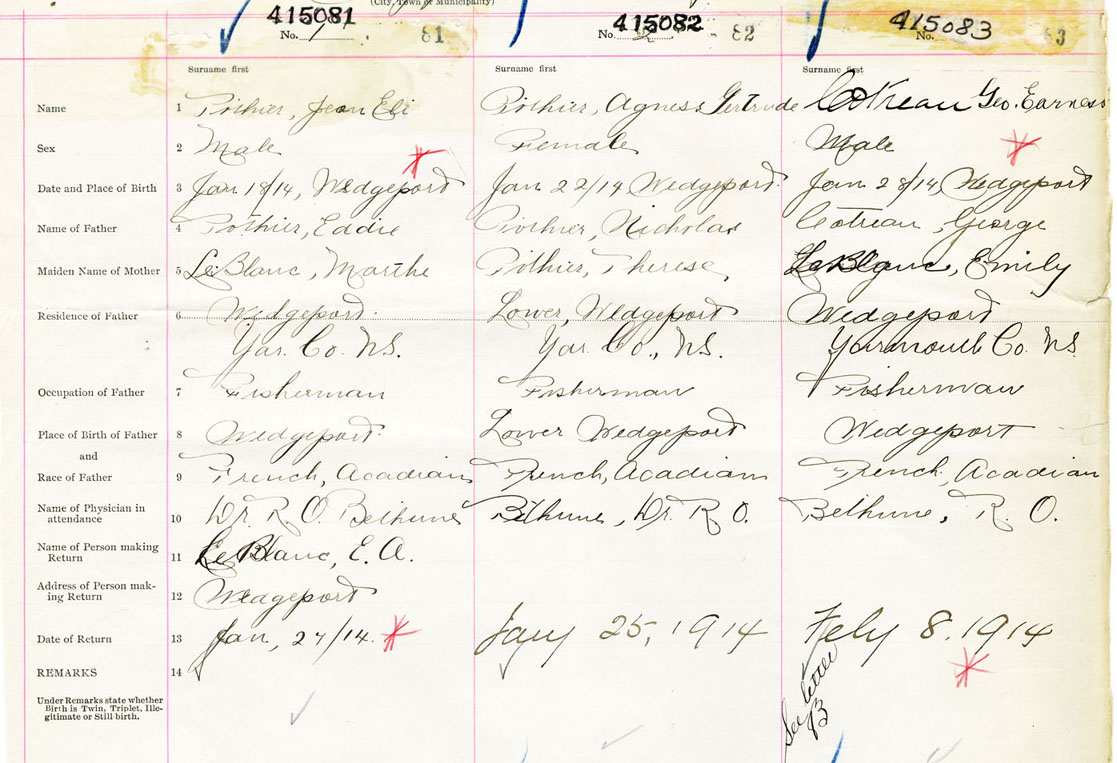 (City, Town or Municipality)
415081 415082 415083
No. 81 No. 82 No. 83
Surname first Surname first Surname first
Name 1 Pothier, Jean Eli Pothier, Agness Gertrude Cotreau Geo. Earness
Sex 2 Male Female Male
Date and Place of Birth 3 Jan 18/14, Wedgeport Jan 22/14 Wedgeport. Jan 28/14, Wedgeport
Name of Father 4 Pothier, Eddie Pothier, Nicholas Cotreau, George
Maiden Name of Mother 5 LeBlanc, Marthe Pothier, Therese, LeBlanc, Emily
Residence of Father 6 Wedgeport. Lower, Wedgeport Wedgeport
Yar. Co. N.S. Yar. Co., N.S. Yarmouth Co. N.S.
Occupation of Father 7 Fisherman Fisherman Fisherman
Place of Birth of Father 8 Wedgeport. Lower Wedgeport Wedgeport
and
Race of Father 9 French, Acadian French, Acadian French, Acadian
Name of Physician in
attendance 10 Dr. R. O. Bethune Bethune, Dr. R O. Bethune, R. O.
Name of Person making
Return 11 LeBlanc, E. A.
Address of Person mak-
ing Return 12 Wedgeport
Date of Return 13 Jan, 27/14. Jany 25, 1914 Feby 8, 1914
REMARKS 14
See letter
B
Under Remarks state whether
Birth is Twin, Triplet, Ille-
gitimate or Still-birth.